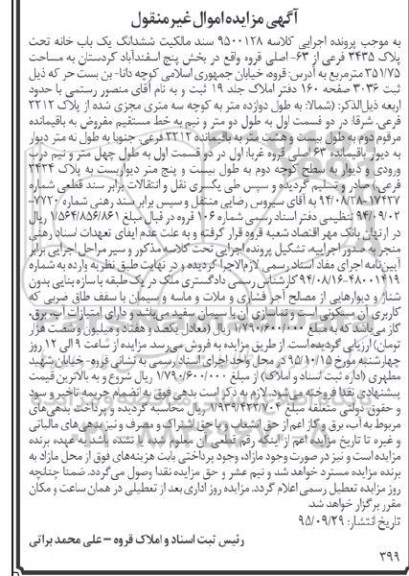 آگهی مزایده اموال غیر منقول
به موجب پرونده اجرایی کلاسه ۹۵۰۰۱۲۸ سند مالکیت ششدانگ یک باب خانه تحت
پلاک ۳۴۳۵ فرعی از ۶۳- اصلی قروه واقع در بخش پنج اسفندآباد کردستان به مساحت
۳۵۱/۷۵ مترمربع به آدرس: قروه، خیابان جمهوری اسلامی کوچه دانا- بن بست حر که ذیل
ثبت ۳۰۳۶ صفحه ۱۶۰ دفتر املاک جلد ۱۹ ثبت و به نام آقای منصور رستمی با حدود
اربعه ذیل‌الذکر: (شمالا: به طول دوازده متر به کوچه سه متری مجزی شده از پلاک ۲۲۱۲
فرعی، شرقا: در دو قسمت اول به طول دو متر و نیم به خط مستقیم مفروض به باقیمانده
مرقوم دوم به طول بیست و هشت متر به باقیمانده ۲۲۱۲ فرعی، جنوبا به طول نه متر دیوار
به دیوار باقیمانده ۶۳ اصلی قروه غربا: اول در دو قسمت اول به طول چهل متر و نیم درب
ورودی و دیوار به سطح کوچه دوم به طول بیست و پنج متر دیواریست به پلاک ۲۴۳۴
فرعی، صادر و تسلیم گردیده و سپس طی یکسری نقل و انتقالات برابر سند قطعی شماره
۱۷۴۳۷- ۹۴/۰۸/۲۸ به آقای سیروس رضایی منتقل و سپس برابر سند رهنی شماره ۷۷۲۰-
۹۴/۰۹/۰۲ تنظیمی دفتر اسناد رسمی شماره ۱۰۶ قروه در قبال مبلغ ۱/۵۶۴/۸۵۶/۸۶۱ ریال
در ارتهان بانک مهر اقتصاد شعبه قروه قرار گرفته و به علت عدم ایفای تعهدات اسناد رهنی
منجر به صدور اجراییه، تشکیل پرونده اجرایی تحت کلاسه مذکور و سیر مراحل اجرایی برابر
آیین‌نامه اجرای مفاد اسناد رسمی لازم‌الاجرا گردیده و در نهایت طبق نظریه وارده به شماره
۴۸۰۰۱۴۱۹- ۹۴/۰۸/۱۶ کارشناس رسمی دادگستری ملک در یک طبقه با سازه بنایی بدون
شناژ و دیوارهایی از مصالح آجر فشاری و ملات و ماسه و سیمان با سقف طاق ضربی که
کاربری آن مسکونی است و نماسازی آن با سیمان سفید می‌باشد و دارای امتیازات آب، برق،
گاز می‌باشد که به مبلغ ۱/۷۹۰/۶۰۰/۰۰۰ ریال (معادل یکصد و هفتاد و میلیون و شصت هزار
تومان) ارزیابی گردیده است، از طریق مزایده به فروش می‌رسد. مزایده از ساعت ۹ الی ۱۲ روز
چهارشنبه مورخ ۹۵/۱۰/۱۵ در محل واحد اجرای اسناد رسمی به نشانی قروه- خیابان شهید
مطهری (اداره ثبت اسناد و املاک) از مبلغ ۱/۷۹۰/۶۰۰/۰۰۰ ریال شروع و به بالاترین قیمت
پیشنهادی نقدا فروخته می‌شود. لازم به ذکر است بدهی فوق به انضمام جریمه تاخیر و سود
و حقوق دولتی متعلقه مبلغ ۱/۹۳۹/۴۲۲/۷۰۴ ریال محاسبه گردیده و پرداخت بدهی‌های
مربوط به آب، برق و گاز اعم از حق انشعاب و یا حق اشتراک و مصرف و نیز بدهی های مالیاتی
و غیره تا تاریخ مزایده اعم از اینکه رقم قطعی آن معلوم شده یا نشده باشد به عهده برنده
مزایده است و نیز در صورت وجود مازاد، وجوه پرداختی بابت هزینه‌های فوق از محل مازاد به
برنده مزایده مسترد خواهد شد و نیم عشر و حق مزایده نقدا وصول می‌گردد. ضمنا چنانچه
روز مزایده تعطیل رسمی اعلام گردد، مزایده روز اداری بعد از تعطیلی در همان ساعت و مکان
مقرر برگزار خواهد شد.
تاریخ انتشار: ۹۵/۰۹/۲۹
رئیس ثبت اسناد و املاک قروه – علی محمد براتی
۳۹۹